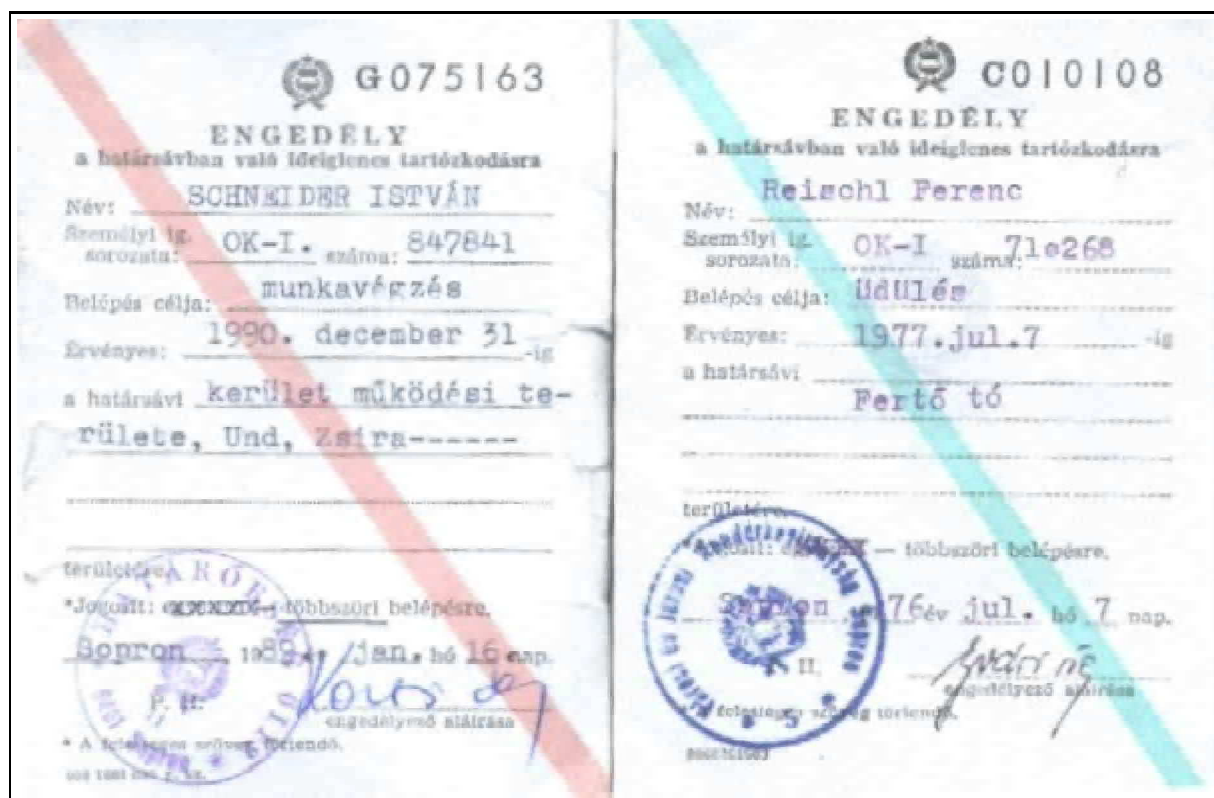 G075163
ENGEDÉLY
a határsávban való ideiglenes tartózkodásra
Név: SCHNEIDER ISTVÁN
Személyi ig.
sorozata: OK-I. száma: 847841
Belépés célja: munkavégzés
Érvényes: 1990. december 31 -ig
a határsávi kerület működési te-
rülete, Und, Zsira------
területére.
*Jogosít: többszöri belépésre.
Sopron, 1989 év jan. hó 16 nap.
P. H.
engedélyező aláírása
* A felesleges szöveg törlendő.
C010108
ENGEDÉLY
a határsávban való ideiglenes tartózkodásra
Név: Reischl Ferenc
Személyi ig.
sorozata: OK-I száma: 71o268
Belépés célja: Üdülés
Érvényes: 1977.jul.7 -ig
a határsávi
Fertő tó
területére.
— többszöri belépésre.
Sopron, 1976 év jul. hó 7 nap.
P. H.
engedélyező aláírása
felesleges szöveg törlendő.